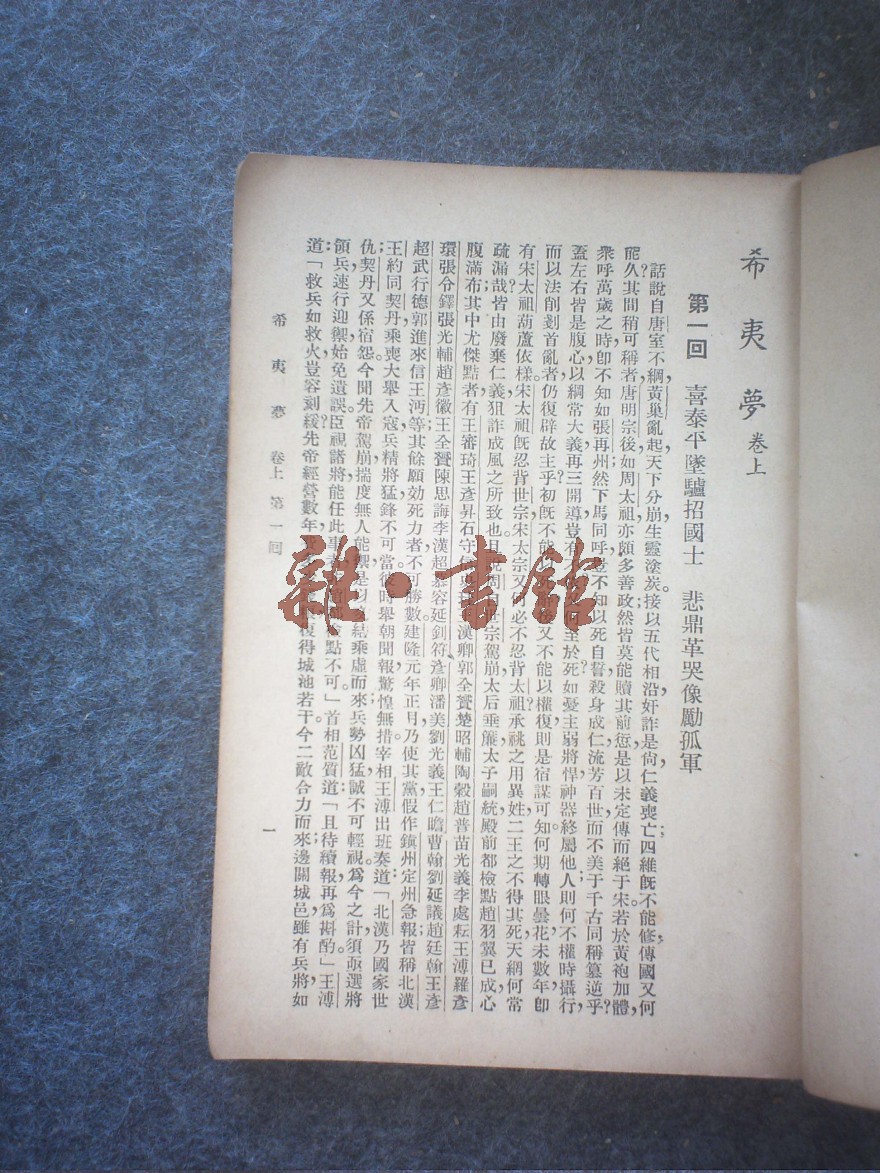 希夷夢 卷上
第一回 喜泰平墜驢招國士 悲鼎革哭像勵孤軍
話說自唐室不綱,黃巢亂起,天下分崩,生靈塗炭。接以五代相沿,奸詐是尙,仁義喪亡,四維旣不能修,傳國又何
能久?其間稍可稱者,唐明宗後,如周太祖亦頗多善政,然皆莫能贖其前愆,是以未定傳而絕于宋。若於黃袍加體,
衆呼萬歲之時,卽不知如張再州然下馬同呼,豈不知以死自誓,殺身成仁,流芳百世,而不美于千古同稱篡逆乎?
蓋左右皆是腹心,以綱常大義再三開導,豈有 至於死?如憂主弱將悍,神器終屬他人,則何不權時攝行,
而以法削剗首亂者,仍復辟故主乎?初旣不能 又不能以權復,則是宿謀可知。何期轉眼曇花,未數年卽
有宋太祖葫蘆依樣。宋太祖旣忍背世宗,宋太宗又何必不忍背太祖?承祧之用異姓,二王之不得其死,天網何常
疏漏哉!皆由廢棄仁義,狙詐成風之所致也。且說周世宗駕崩,太后垂簾,太子嗣統,殿前都檢點趙羽翼已成,心
腹滿布。其中尤傑點者,有王審琦王彥昇石守信 漢卿郭全贇楚昭輔陶穀趙普苗光義李處耘王溥羅彥
環張令鐸張光輔趙彥徽王全贇陳思誨李漢超慕容延釗符彥卿潘美劉光義王仁瞻曹翰劉延議趙廷翰王彥
超武行德郭進來信王沔等,其餘願効死力者不可勝數。建隆元年正月,乃使其黨假作鎮州定州急報,皆稱北漢
王約同契丹乘喪大舉入寇,兵精將猛,鋒不可當。彼時舉朝聞報,驚惶無措。宰相王溥出班奏道:「北漢乃國家世
仇,契丹又係宿怨。今聞先帝駕崩,揣度無人能禦,是以 結乘虛而來,兵勢凶猛,誠不可輕視。爲今之計,須亟選將
領兵,速行迎禦,始免遺誤。臣視諸將能任此事者, 檢點不可。」首相范質道:「且待續報,再爲斟酌。」王溥
道:「救兵如救火,豈容刻緩?先帝經營數年, 復得城池若干。今二敵合力而來,邊關城邑,雖有兵將,如
希夷夢 卷上 第一回
一
雜·書館